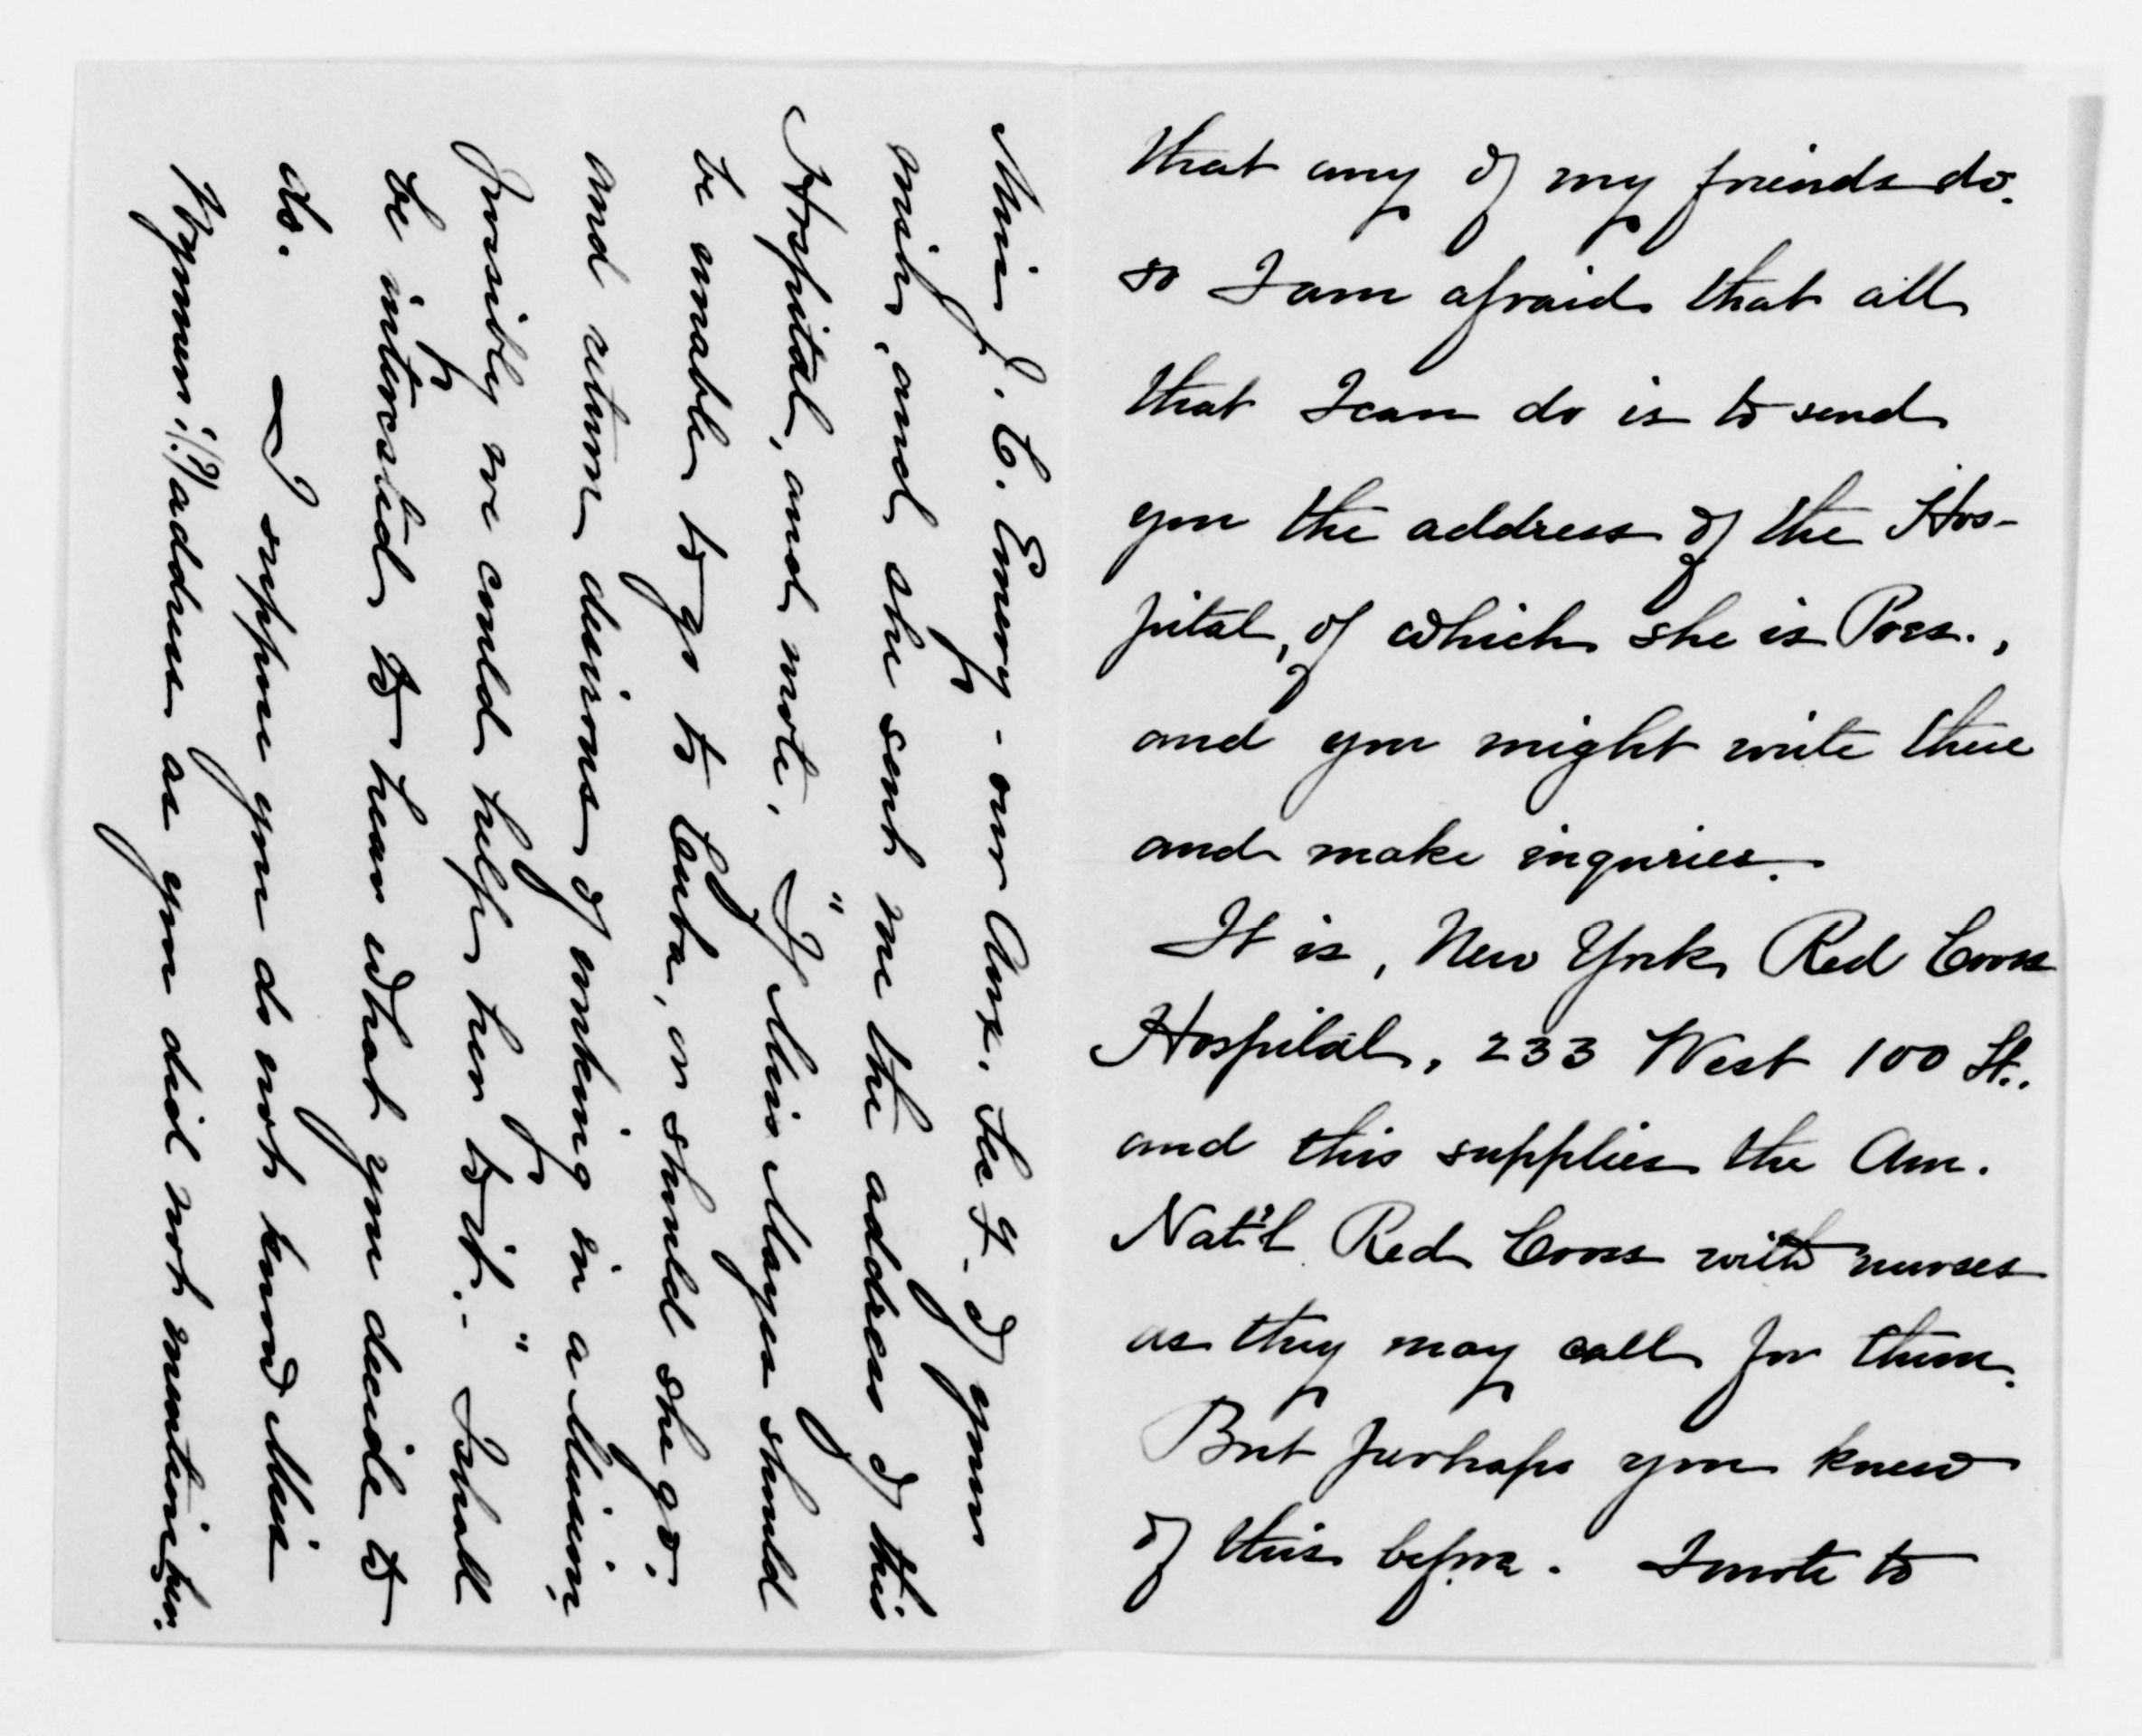 that any of my friends do.
so I am afraid that all
that I can do is to send
you the address of the Hos-
pital, of which she is Pres.,
and you might write there
and make inquries.
It is, New York Red Cross
Hospital, 233 West 100 St..
and this supplies the Am.
Nat'l Red Cross with nurses
as they may call for them.
But perhaps you knew
of this before. I wrote to
Miss J. C. Emery - our Aux. Sec'y. of your
wish, and she sent me the address of this
Hospital, and wrote, "If Miss Mayes should
be unable to go to Cuba, or should she go.
and return desirous of working in a Mission,
possibly we could help her to it.- " I shall
be interested to hear what you decide to
do. — I suppose you do not know Miss
address as you did not mention her.